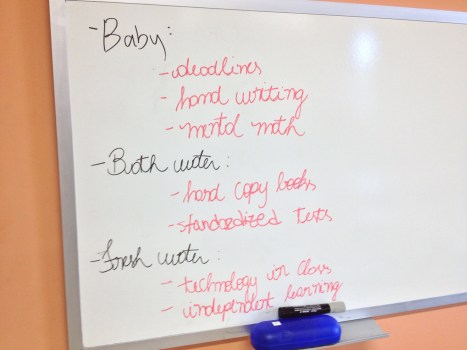 - Baby:
- deadlines
- hand writing
- mental math
- Bath water:
- hard copy books
- standardized tests
- Fresh water:
- technology in class
- independent learning